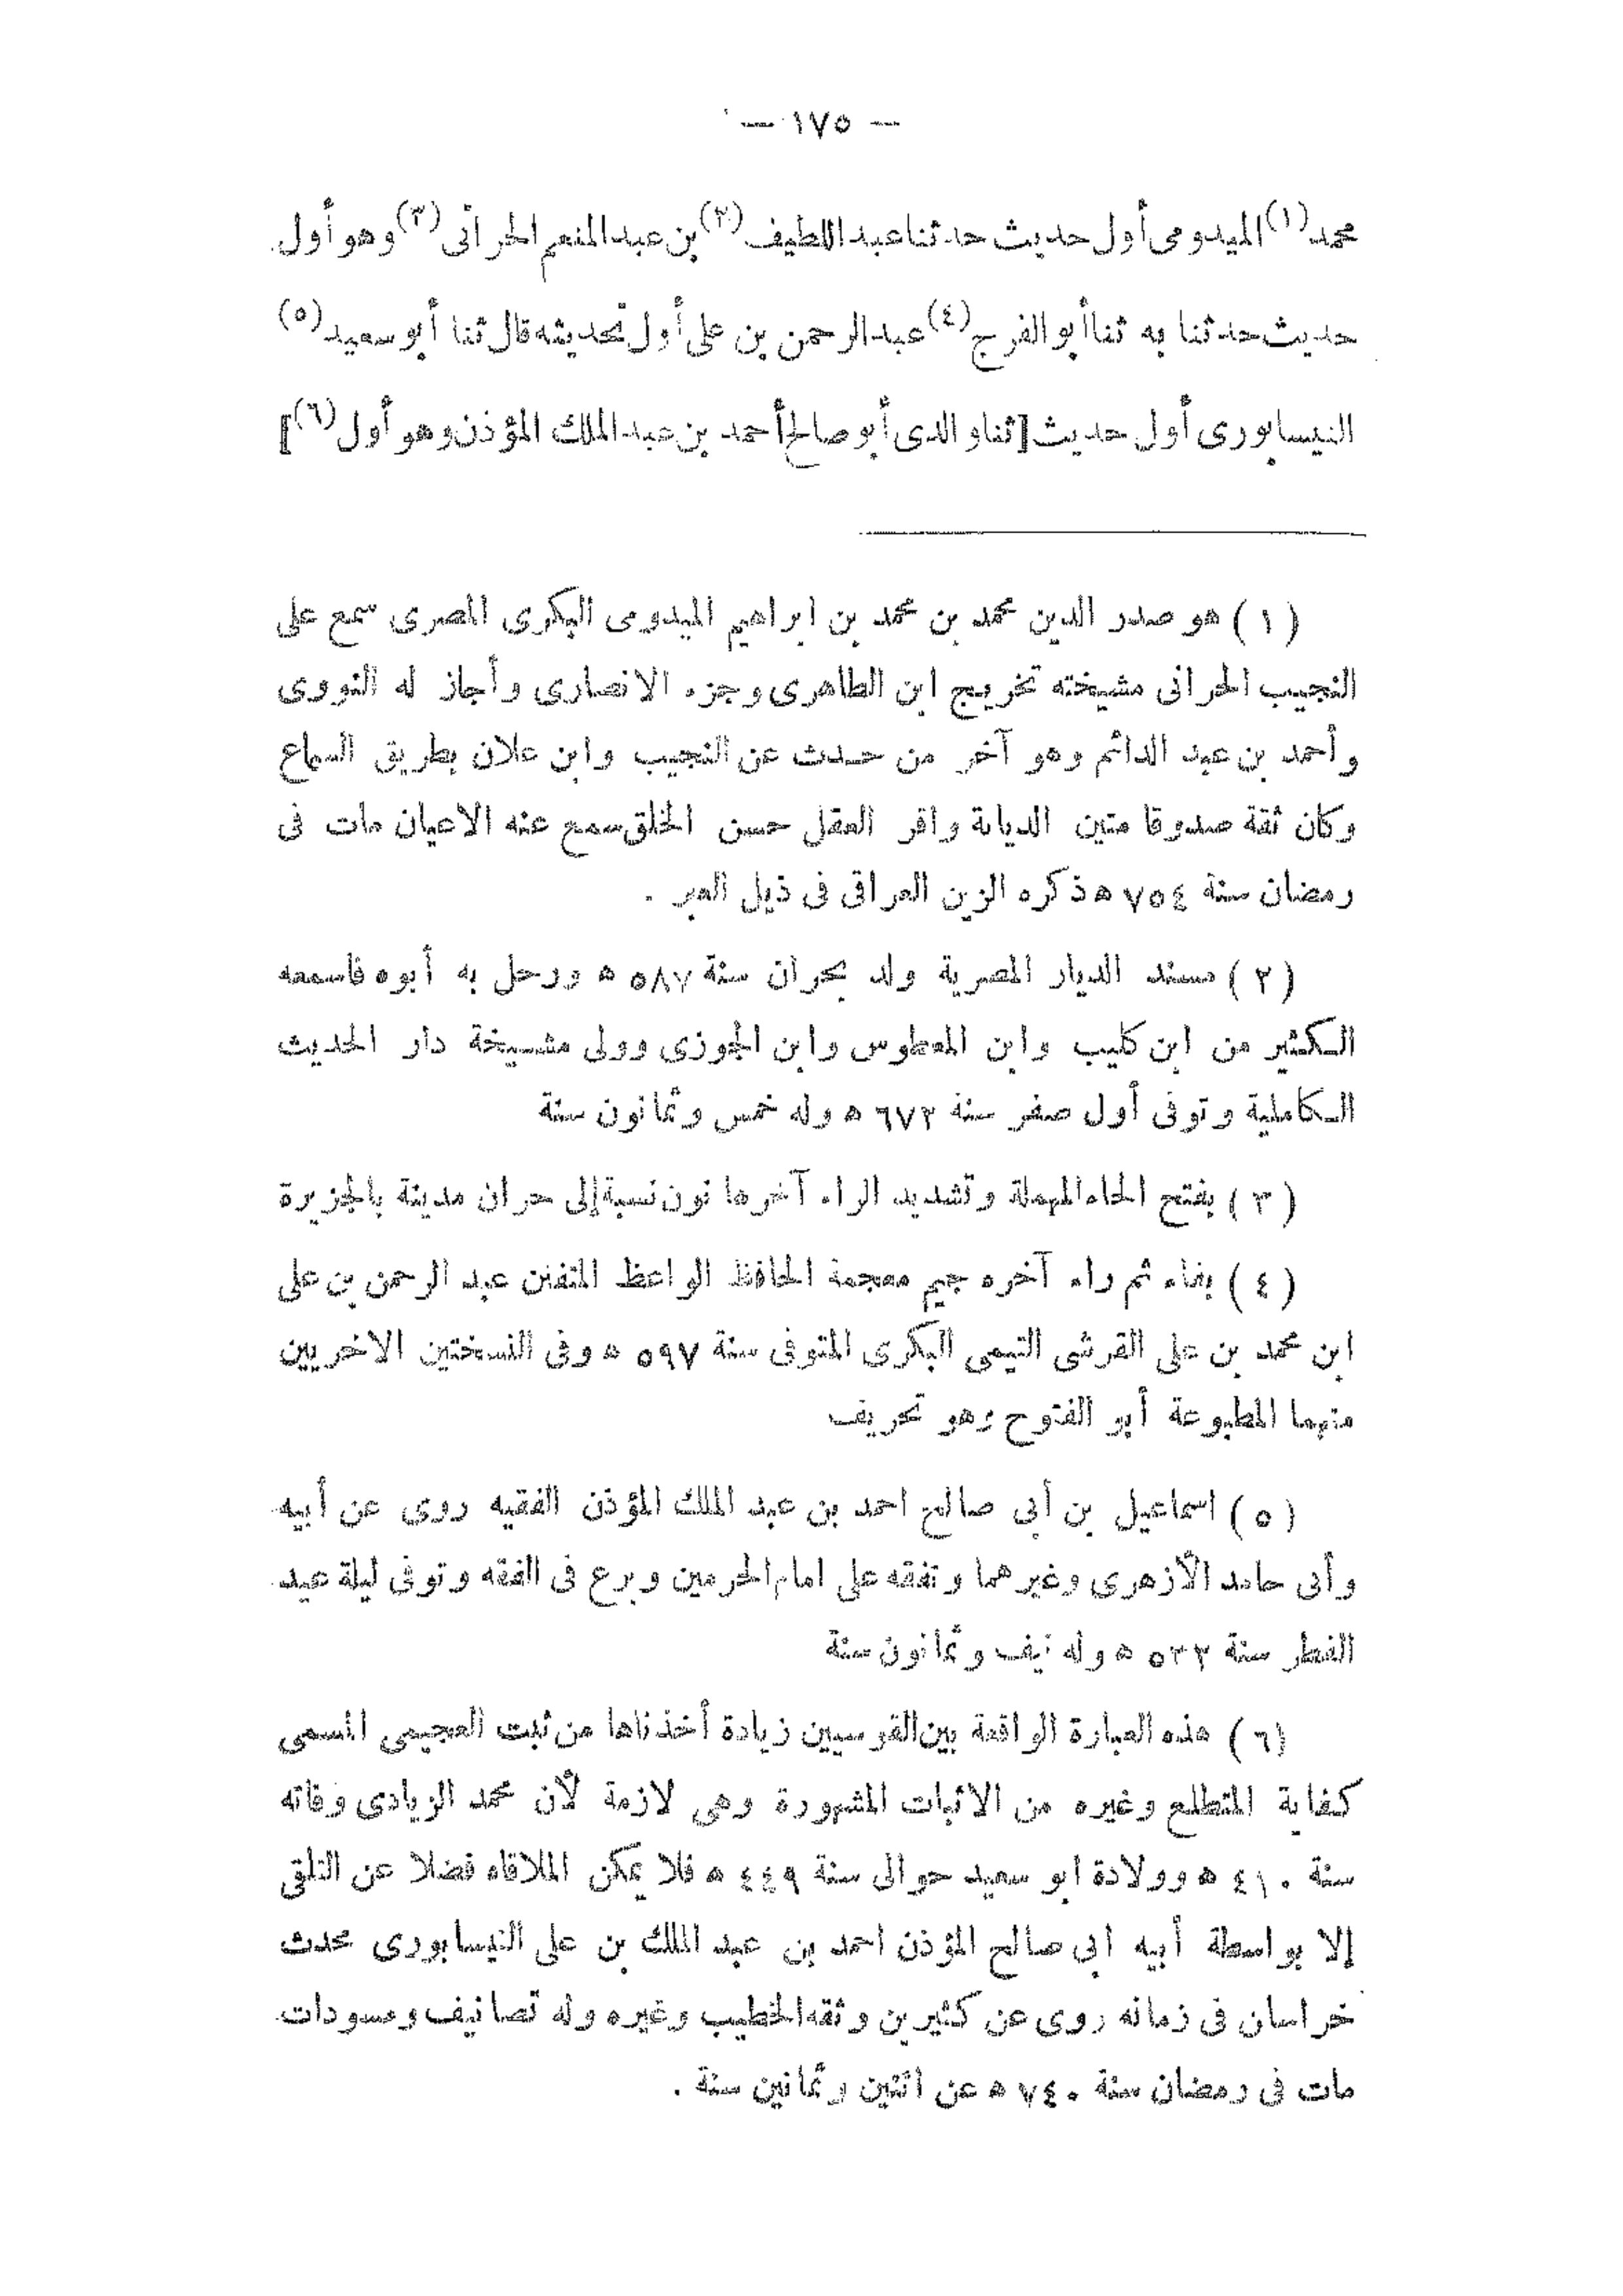 — ١٧٥ —
محمد(١) الميدومى أول حديث حدثنا عبد اللطيف(٢) بن عبد المنعم الحرانى(٣) وهو أول
حديث حدثنا به ثنا أبو الفرج(٤) عبد الرحمن بن على أول تحديثه قال ثنا أبو سعيد(٥)
النيسابورى أول حديث [ثنا والدى أبو صالح أحمد بن عبد الملك المؤذن وهو أول(٦)]
(١) هو صدر الدين محمد بن محمد بن ابراهيم الميدومى البكرى المصرى سمع على
النجيب الحرانى مشيخته تخريج ابن الظاهرى وجزء الانصارى وأجاز له النووى
وأحمد بن عبد الدائم وهو آخر من حدث عن النجيب وابن علان بطريق السماع
وكان ثقة صدوقا متين الديانة وافر العقل حسن الخلق سمع عنه الاعيان مات فى
رمضان سنة ٧٥٤ ه ذكره الزين العراقى فى ذيل العبر .
(٢) مسند الديار المصرية ولد بحران سنة ٥٨٧ ه ورحل به أبوه فاسمعه
الكثير من ابن كليب وابن المعطوس وابن الجوزى وولى مشيخة دار الحديث
الكاملية وتوفى أول صفر سنة ٦٧٢ ه وله خمس وثمانون سنة
(٣) بفتح الحاء المهملة وتشديد الراء آخرها نون نسبة إلى حران مدينة بالجزيرة
(٤) بفاء ثم راء آخره جيم معجمة الحافظ الواعظ المتفنن عبد الرحمن بن على
ابن محمد بن على القرشى التيمى البكرى المتوفى سنة ٥٩٧ ه وفى النسختين الاخريين
منهما المطبوعة أبو الفتوح وهو تحريف
(٥) اسماعيل بن أبى صالح احمد بن عبد الملك المؤذن الفقيه روى عن أبيه
وأبى حامد الأزهرى وغيرهما وتفقه على امام الحرمين وبرع فى الفقه وتوفى ليلة عيد
الفطر سنة ٥٣٢ ه وله نيف وثمانون سنة
(٦) هذه العبارة الواقعة بين القوسين زيادة أخذناها من ثبت العجيمى المسمى
كفاية المتطلع وغيره من الاثبات المشهورة وهى لازمة لأن محمد الزيادى وفاته
سنة ٤١٠ ه وولادة ابو سعيد حوالى سنة ٤٤٩ ه فلا يمكن الملاقاه فضلا عن التلقى
إلا بواسطة أبيه ابى صالح المؤذن احمد بن عبد الملك بن على النيسابورى محدث
خراسان فى زمانه روى عن كثيرين وثقه الخطيب وغيره وله تصانيف ومسودات
مات فى رمضان سنة ٧٤٠ ه عن اثنين وثمانين سنة .